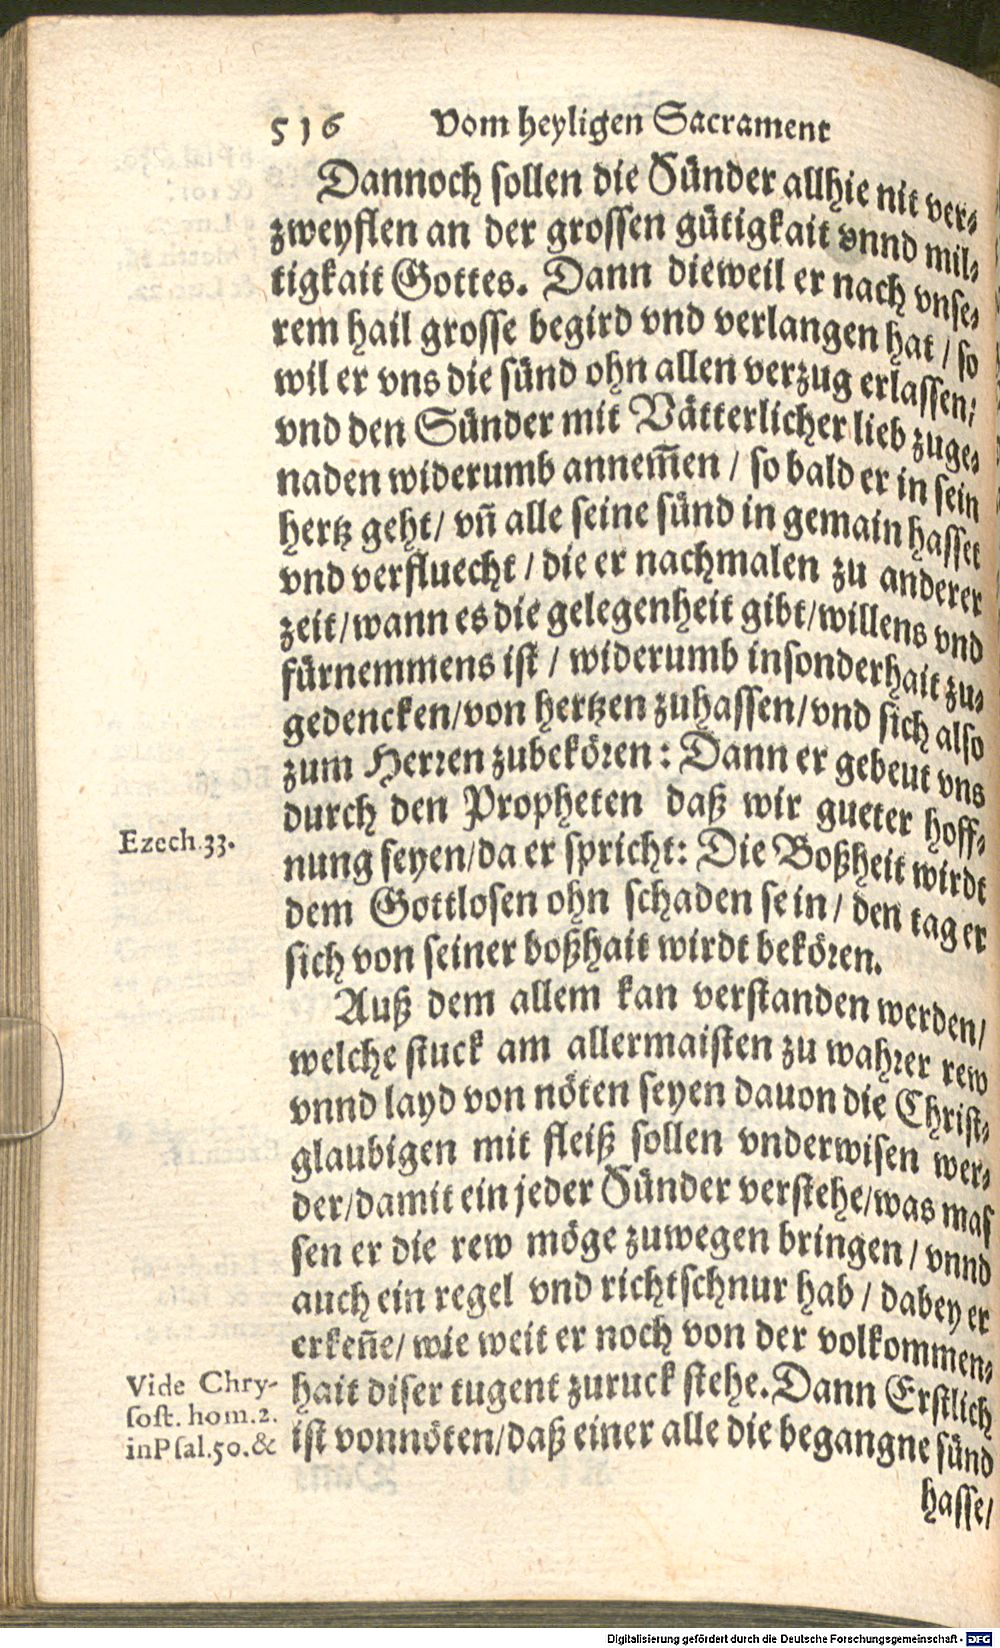 516 Vom heyligen Sacrament
Dannoch sollen die Sünder allhie nit ver⸗
zweyflen an der grossen gütigkait vnnd mil⸗
tigkait Gottes. Dann dieweil er nach vnse⸗
rem hail grosse begird vnd verlangen hat / so
wil er vns die sünd ohn allen verzug erlassen/
vnd den Sünder mit Vätterlicher lieb zuge⸗
naden widerumb annem̄en / so bald er in sein
hertz geht/ vn̄ alle seine sünd in gemain hasset
vnd verfluecht / die er nachmalen zu anderer
zeit/wann es die gelegenheit gibt/willens vnd
fürnemmens ist / widerumb insonderhait zu⸗
gedencken/von hertzen zuhassen/vnd sich also
zum Herren zubekören: Dann er gebeut vns
durch den Propheten daß wir gueter hoff⸗
Ezech.33.
nung seyen/da er spricht: Die Boßheit wirdt
dem Gottlosen ohn schaden sein/ den tag er
sich von seiner boßhait wirdt bekören.
Auß dem allem kan verstanden werden/
welche stuck am allermaisten zu wahrer rew
vnnd layd von nöten seyen dauon die Christ⸗
glaubigen mit fleiß sollen vnderwisen wer⸗
der/damit ein jeder Sünder verstehe/was mas
sen er die rew möge zuwegen bringen / vnnd
auch ein regel vnd richtschnur hab / dabey er
erken̄e/ wie weit er noch von der volkommen⸗
hait diser tugent zuruck stehe. Dann Erstlich
ist vonnöten/daß einer alle die begangne sünd
Vide Chry-
sost. hom.2.
in Psal.50.&
hasse/
Digitalisierung gefördert durch die Deutsche Forschungsgemeinschaft - DFG